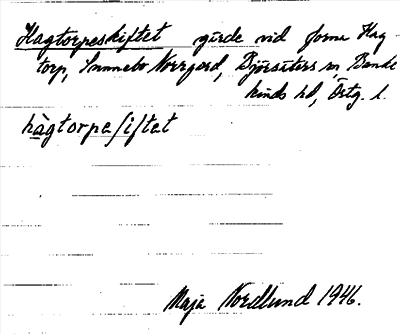 Hagtorpeskiftet gärde vid forna Hag
torp, Sunnebo Norrgård, Björsäters sn, Banke
kinds hd, Östg. l.
hàgtorpeʃiftet
Maja Nordlund 1946.